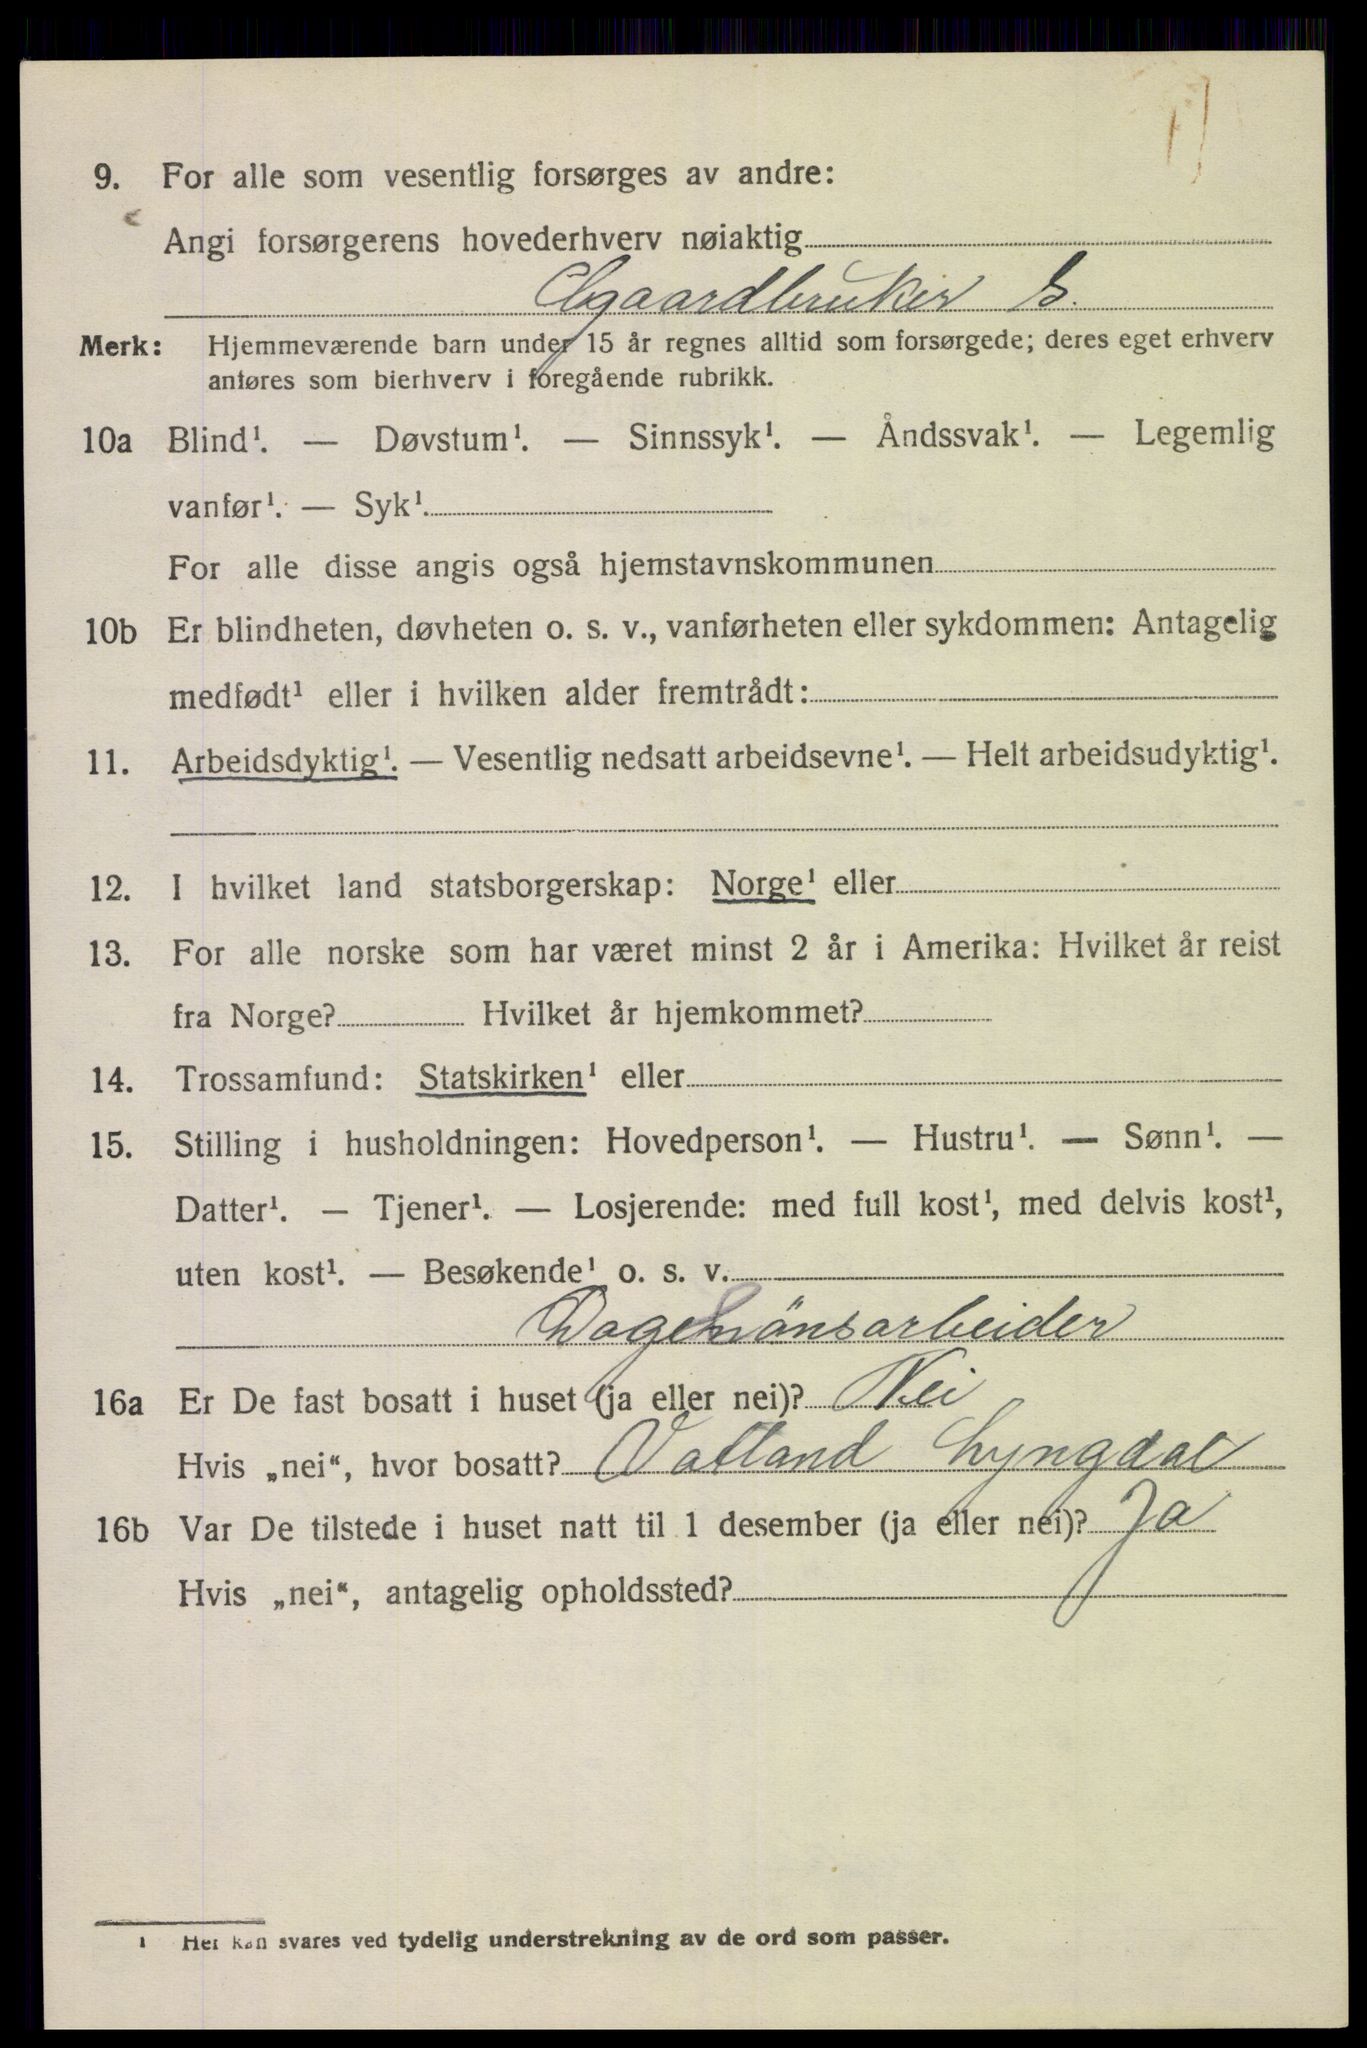 9. For alle som vesentlig forsørges av andre:
Angi forsørgerens hovederhverv nøiaktig
gaardbruker S.
Merk: Hjemmeværende barn under 15 år regnes alltid som forsørgede; deres eget erhverv
anføres som bierhverv i foregående rubrikk.
10a Blind¹. — Døvstum¹. — Sinnssyk¹. — Åndssvak¹. — Legemlig
vanfør¹. — Syk¹.
For alle disse angis også hjemstavnskommunen
10b Er blindheten, døvheten o. s. v., vanførheten eller sykdommen: Antagelig
medfødt¹ eller i hvilken alder fremtrådt:
11. Arbeidsdyktig¹. — Vesentlig nedsatt arbeidsevne¹. — Helt arbeidsudyktig¹.
12. I hvilket land statsborgerskap: Norge¹ eller
13. For alle norske som har været minst 2 år i Amerika: Hvilket år reist
fra Norge? Hvilket år hjemkommet?
14. Trossamfund: Statskirken¹ eller
15. Stilling i husholdningen: Hovedperson¹. — Hustru¹. — Sønn¹. —
Datter¹. — Tjener¹. — Losjerende: med full kost¹, med delvis kost¹,
uten kost¹. — Besøkende¹ o. s. v.
Daglönsarbeider
16a Er De fast bosatt i huset (ja eller nei)? Nei
Hvis „nei“, hvor bosatt? Vatland Lyngdal
16b Var De tilstede i huset natt til 1 desember (ja eller nei)? Ja
Hvis „nei“, antagelig opholdssted?
1 Her kan svares ved tydelig understrekning av de ord som passer.